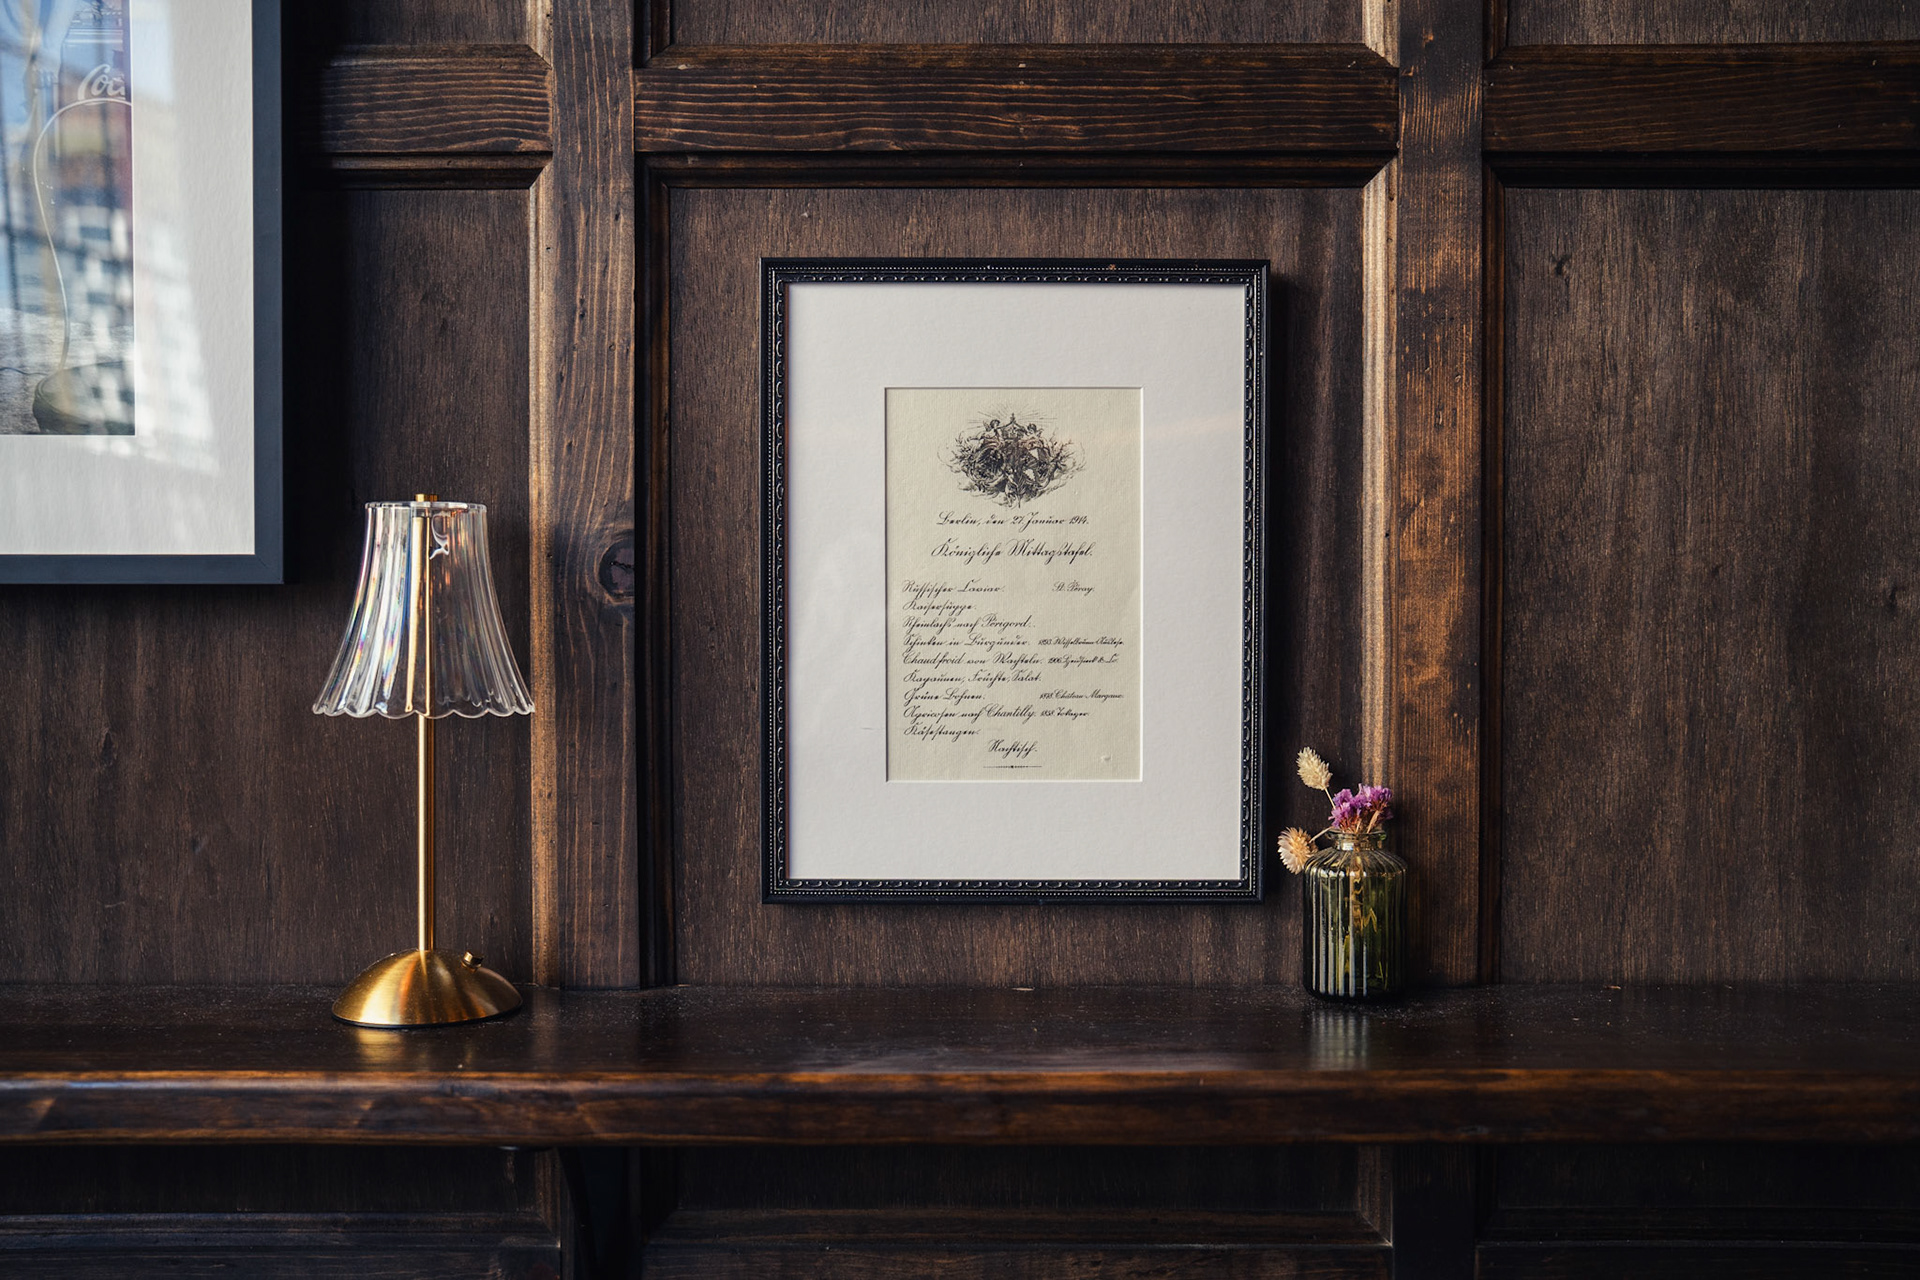 Berlin, den 27. Januar 1914.
Königliche Mittagstafel.
Russischer Caviar. St. Péray.
Kaisersuppe.
Rheinlachs nach Périgord.
Schinken in Burgunder. 1893.
Chaudfroid von Wachteln. 1906. & Co.
Kapaunen, Früchte, Salat.
Grüne Bohnen. 1878. Château Margaux.
Apricosen nach Chantilly. 1858. Tokayer.
Käsestangen.
Nachtisch.